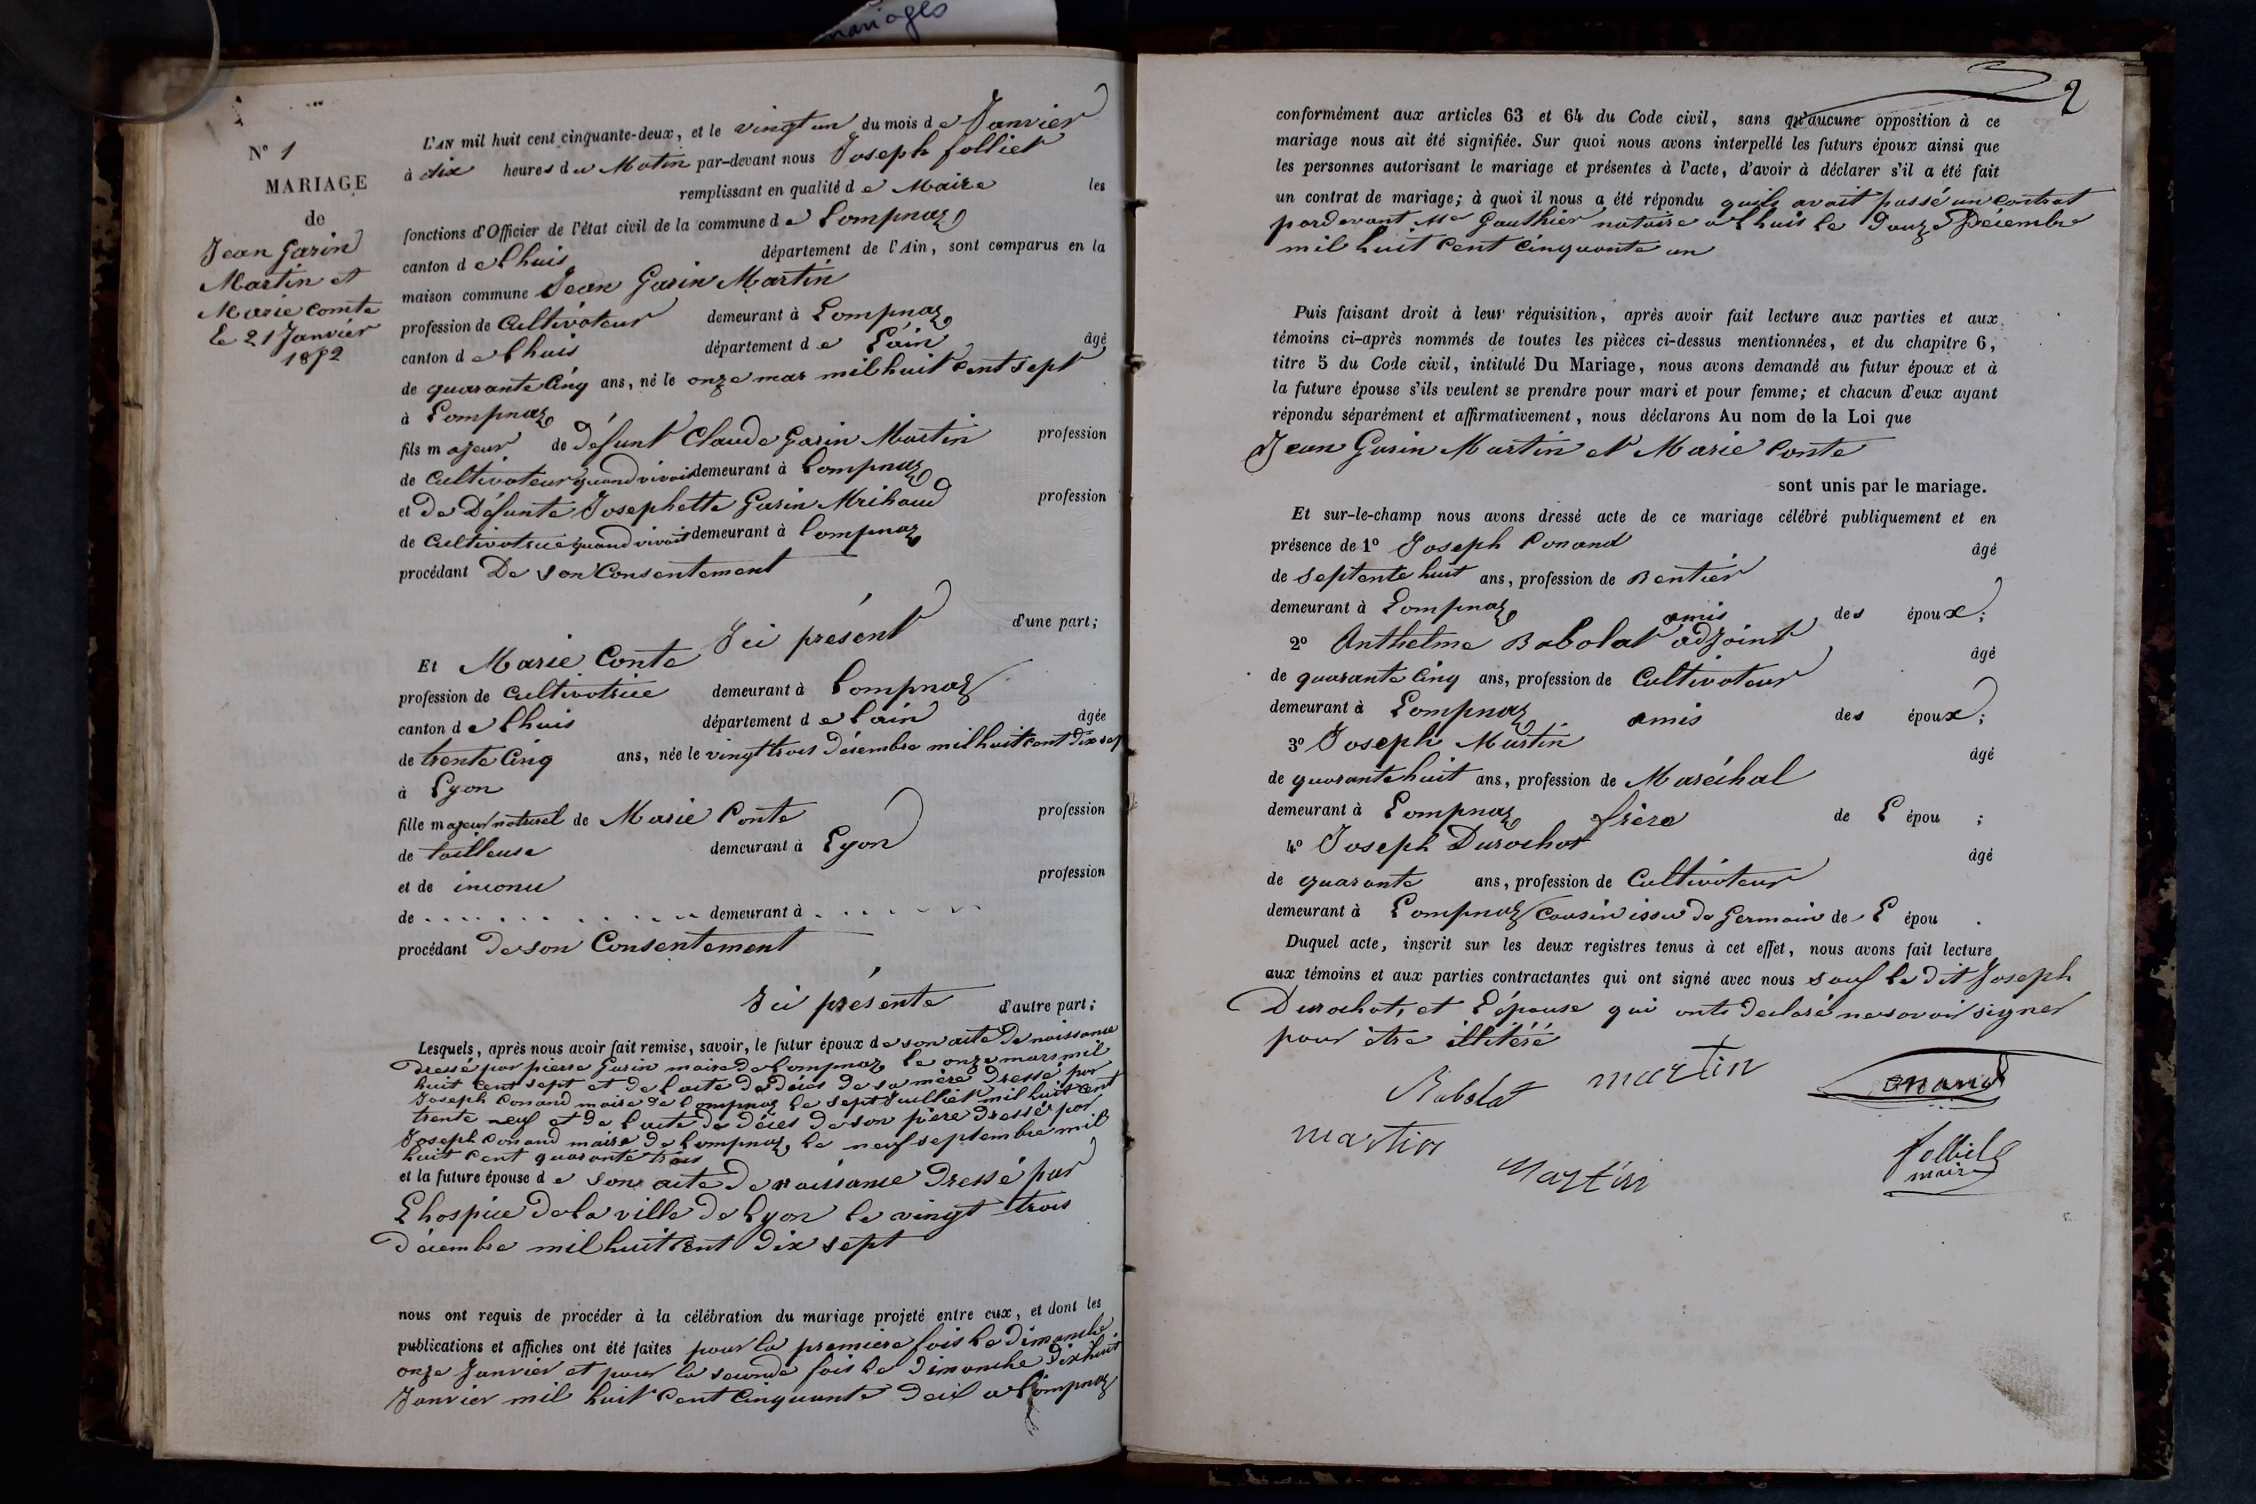 mariages
N° 1
MARIAGE
de
Jean Garin
Martin et
Marie Comte
le 21 Janvier
1852
L'AN mil huit cent cinquante-deux, et le vingt un du mois de Janvier
à dix heures du Matin par-devant nous Joseph folliet
remplissant en qualité de Maire les
fonctions d'Officier de l'état civil de la commune de Lompnaz
canton de Lhuis département de l'Ain, sont comparus en la
maison commune Jean Garin Martin
profession de Cultivateur demeurant à Lompnaz
canton de Lhuis département de L'ain âgé
de quarante Cinq ans, né le onze mar mil huit Cent Sept
à Lompnaz
fils majeur de Défunt Claude Garin Martin profession
de Cultivateur quand vivoit demeurant à Lompnaz
et de Défunte Josephette Garin Mrihaud profession
de Cultivatrice quand vivoit demeurant à Lompnaz
procédant De son Consentement
Ici présent d'une part;
Et Marie Conte
profession de Cultivatrice demeurant à Lompnaz
canton de Lhuis département de Lain âgée
de trente Cinq ans, née le vingt trois Décembre mil huit cent Dix sep
à Lyon
fille majeur naturel de Marie Conte profession
de tailleuse demeurant à Lyon
et de inconu profession
de demeurant à
procédant de son Consentement
Ici présente d'autre part;
Lesquels, après nous avoir fait remise, savoir, le futur époux de son acte De naissance
Dressé par pierre Garin maire de Lompnaz le onze mars mil
huit cent sept et de l'acte de décès de sa mère Dressé par
Joseph Conand maire de Lompnaz le sept Juilliet mil huit cent
trente neuf et de l'acte de décès de son père Dressé par
Joseph Conand maire de Lompnaz le neuf septembre mil
huit Cent quarante trois
et la future épouse de son acte De naissance Dressé par
L hospice De la ville de Lyon le vingt trois
Décembre mil huit Cent Dix sept
nous ont requis de procéder à la célébration du mariage projeté entre eux, et dont les
publications et affiches ont été faites pour la premiere fois le Dimanche
onze Janvier et pour la seconde fois le Dimanche Dix huit
Janvier mil huit Cent Cinquante Deux a Lompnaz
2
conformément aux articles 63 et 64 du Code civil, sans qu'aucune opposition à ce
mariage nous ait été signifiée. Sur quoi nous avons interpellé les futurs époux ainsi que
les personnes autorisant le mariage et présentes à l'acte, d'avoir à déclarer s'il a été fait
un contrat de mariage; à quoi il nous a été répondu quils avait passé un Contrat
pardevant Me Gauthier notaire a Lhuis le Douze Décembre
mil huit Cent Cinquante un
Puis faisant droit à leur réquisition, après avoir fait lecture aux parties et aux
témoins ci-après nommés de toutes les pièces ci-dessus mentionnées, et du chapitre 6,
titre 5 du Code civil, intitulé Du Mariage, nous avons demandé au futur époux et à
la future épouse s'ils veulent se prendre pour mari et pour femme; et chacun d'eux ayant
répondu séparément et affirmativement, nous déclarons Au nom de la Loi que
Jean Garin Martin et Marie Conte
sont unis par le mariage.
Et sur-le-champ nous avons dressé acte de ce mariage célébré publiquement et en
présence de 1° Joseph Conand âgé
de Septente huit ans, profession de Rentier
demeurant à Lompnaz amis des époux;
2° Anthelme Rabolat adjoint âgé
de quarante Cinq ans, profession de Cultivateur
demeurant à Lompnaz amis des époux;
3° Joseph Martin âgé
de quarante huit ans, profession de Maréchal
demeurant à Lompnaz frère de L épou ;
4° Joseph Durochat âgé
de quarante ans, profession de Cultivateur
demeurant à Lompnaz Cousin issu De Germain de L épou .
Duquel acte, inscrit sur les deux registres tenus à cet effet, nous avons fait lecture
aux témoins et aux parties contractantes qui ont signé avec nous sauf le dit Joseph
Durochat, et L'épouse qui onts declaré ne savoir signer
pour être illitéré
Rabolat martin Conand
martin Martin folliet
maire